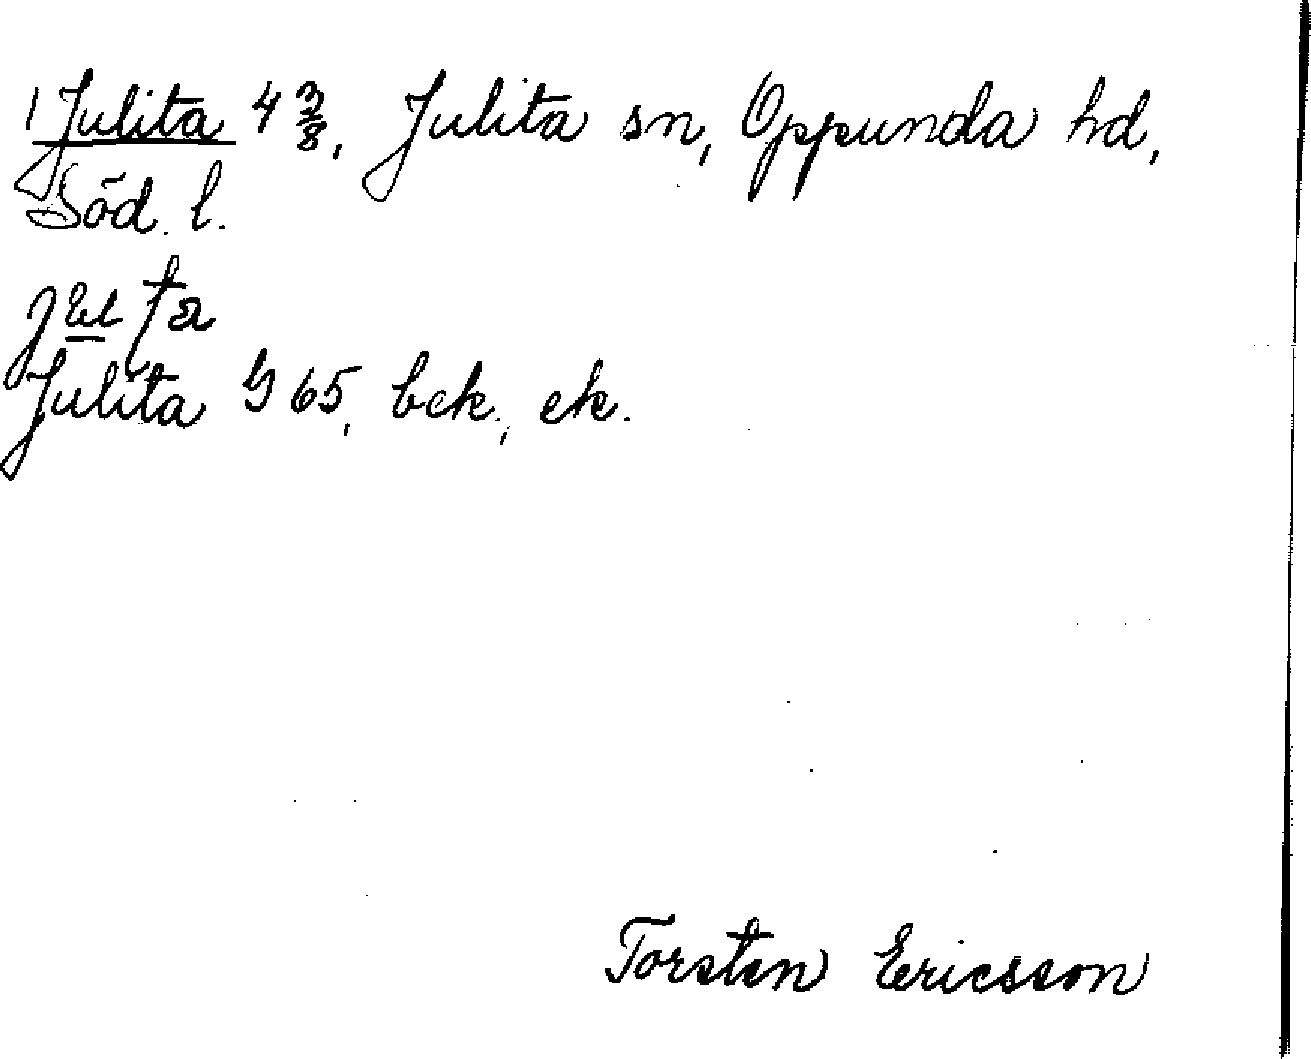 1 Julita 4 3/8, Julita sn, Oppunda hd,
Söd. l.
Julita G 65, bek., ek.
Torsten Ericsson